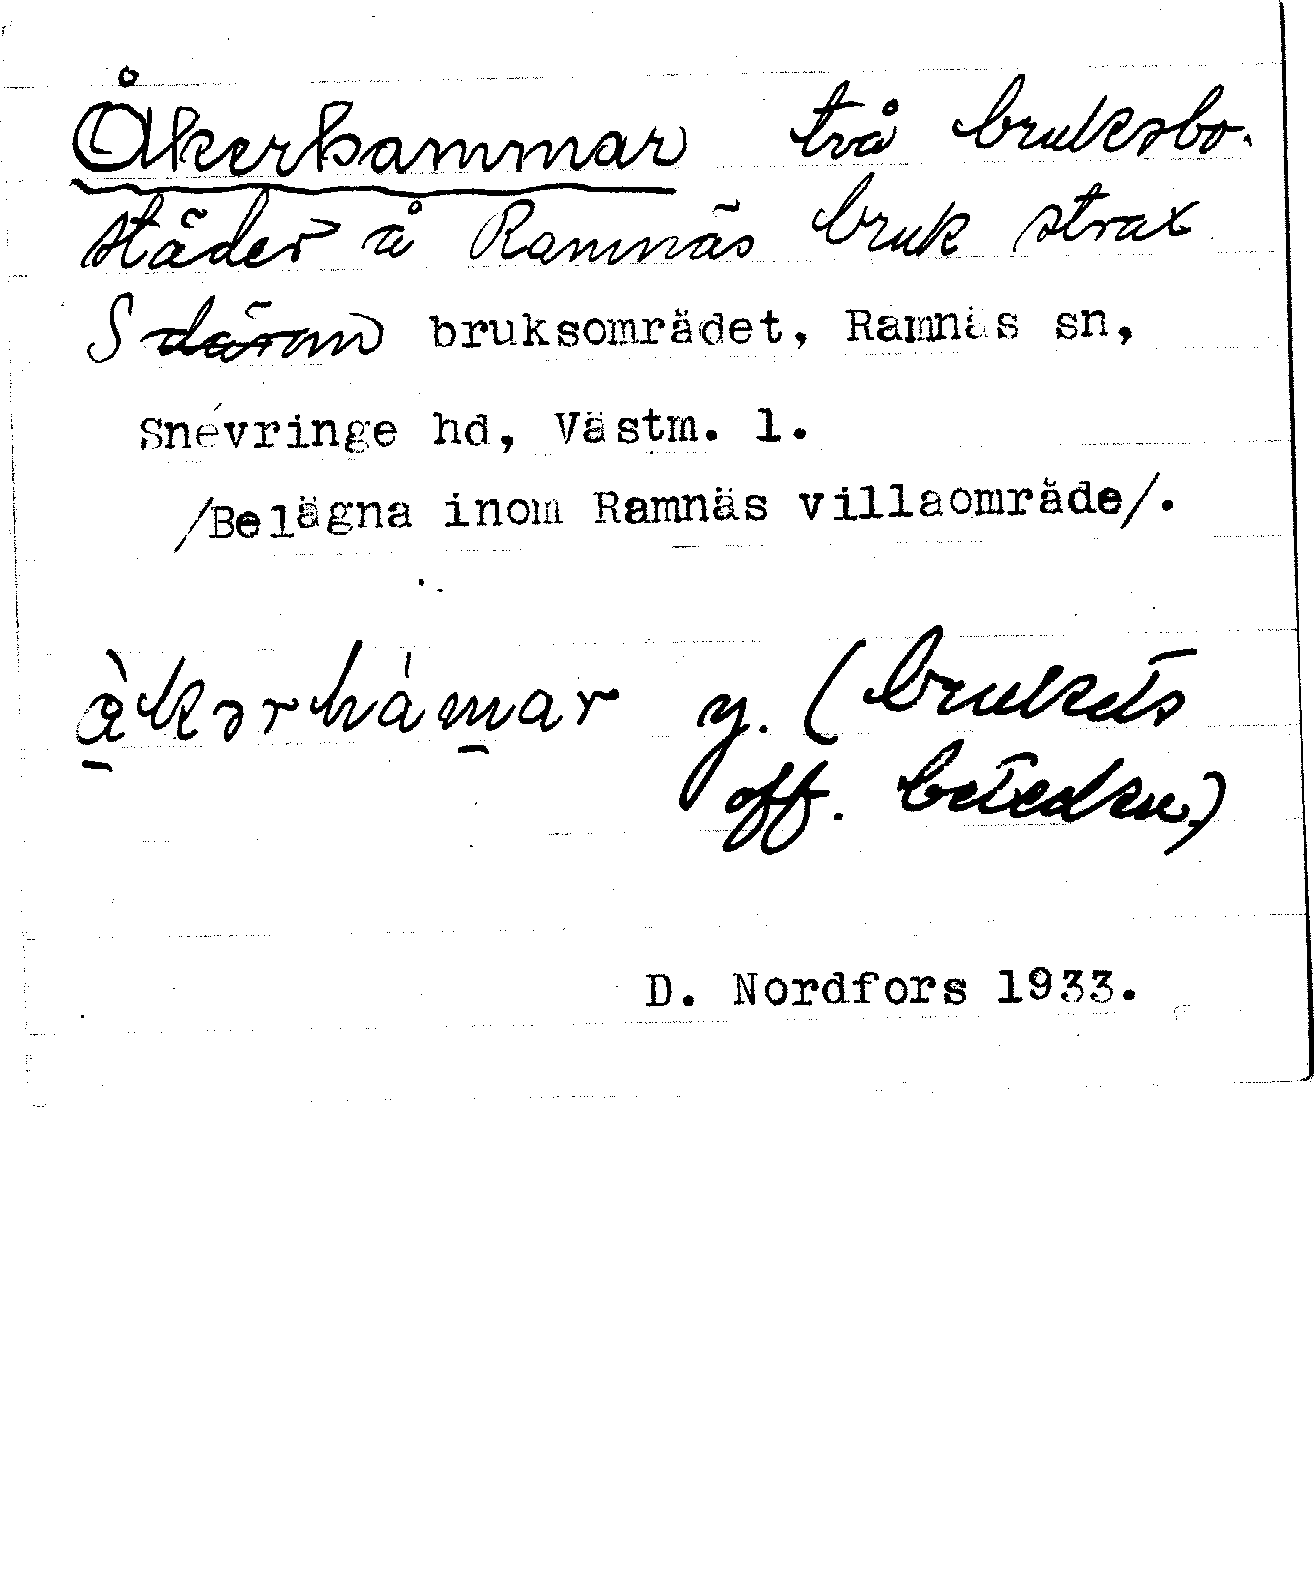 Åkerhammar två bruksbo-
städer å Ramnäs bruk strax
S därom bruksområdet, Ramnäs sn,
Snévringe hd, Västm. l.
/Belägna inom Ramnäs villaområde/.
åkərhamar y. (brukets
off. beteckn.)
D. Nordfors 1933.